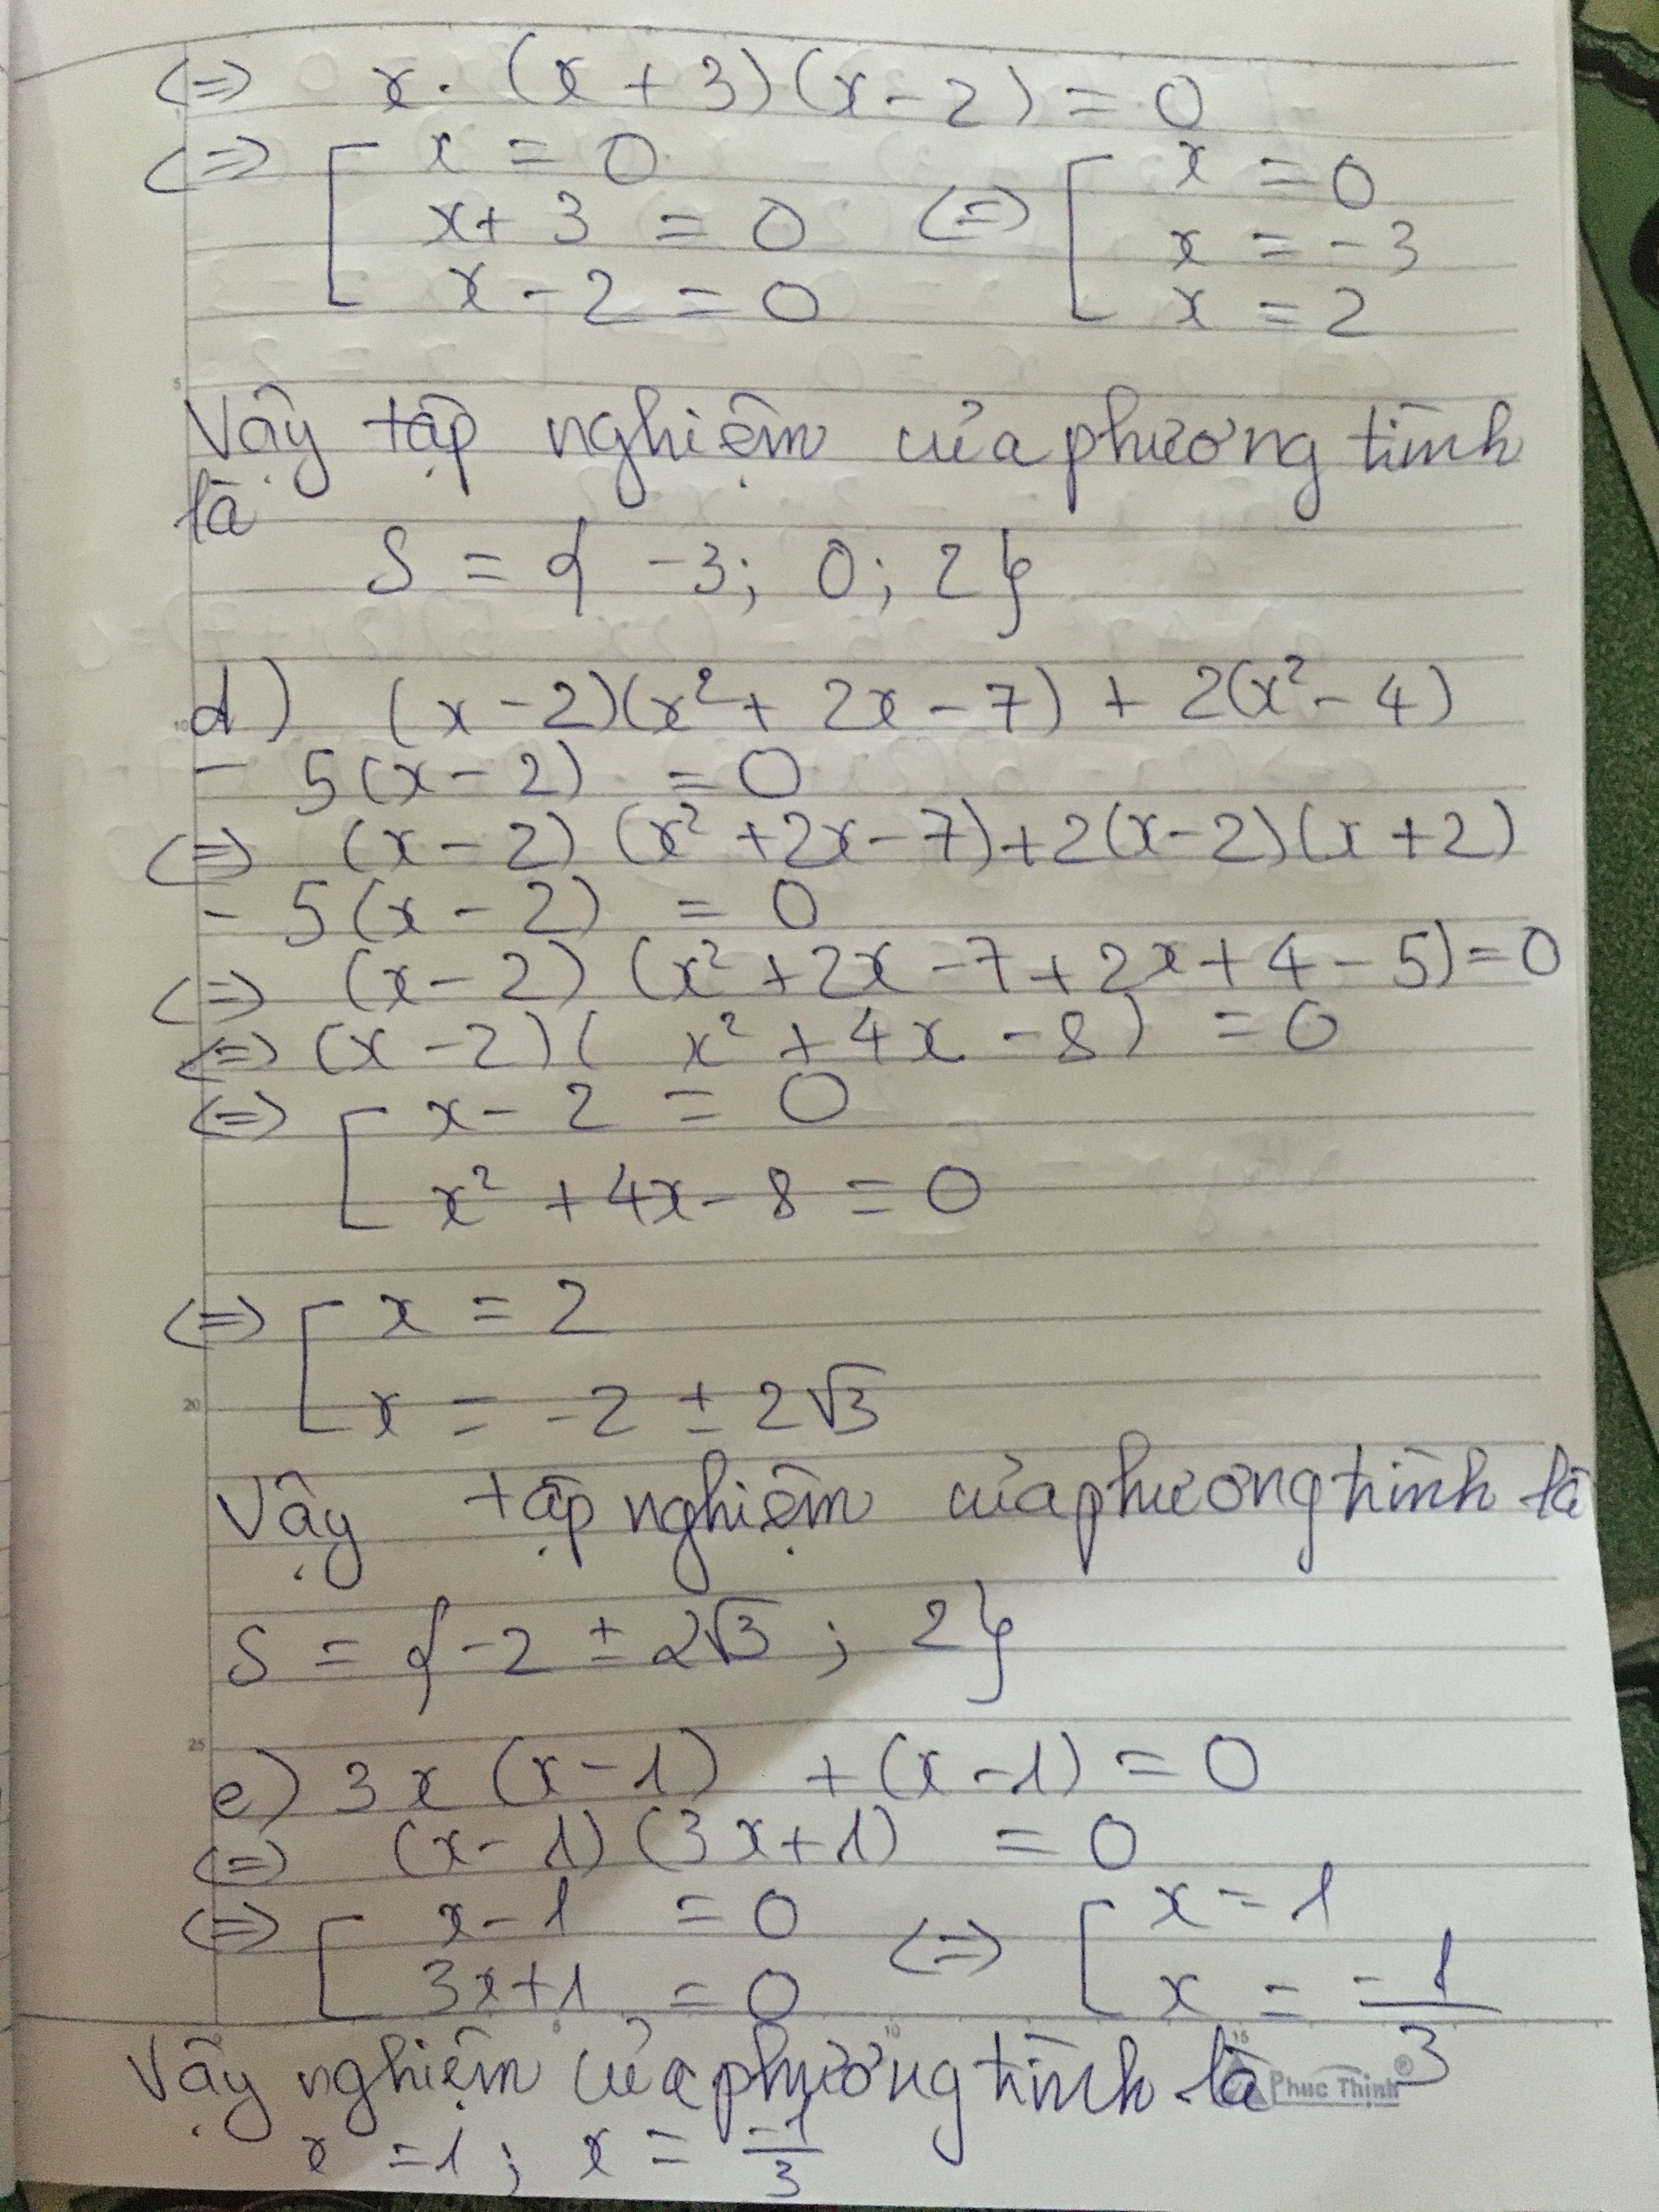 ⇔ x. (x + 3)(x - 2) = 0
⇔ [ x = 0 ⇔ [ x = 0
x + 3 = 0 x = -3
x - 2 = 0 x = 2
Vậy tập nghiệm của phương tình
là
S = { -3; 0; 2}
d) (x - 2)(x² + 2x - 7) + 2(x² - 4)
- 5(x - 2) = 0
⇔ (x - 2) (x² + 2x - 7) + 2(x - 2)(x + 2)
- 5(x - 2) = 0
⇔ (x - 2) (x² + 2x - 7 + 2x + 4 - 5) = 0
⇔ (x - 2)( x² + 4x - 8) = 0
⇔ [ x - 2 = 0
x² + 4x - 8 = 0
⇔ [ x = 2
x = -2 ± 2√3
Vậy tập nghiệm của phương trình là
S = {-2 ± 2√3 ; 2}
e) 3x (x - 1) + (x - 1) = 0
⇔ (x - 1) (3x + 1) = 0
⇔ [ x - 1 = 0 ⇔ [ x = 1
3x + 1 = 0 x = -1/3
Vậy nghiệm của phương tình là
x = 1; x = -1/3
5
10
20
25
5
10
15
Phuc Thinh®